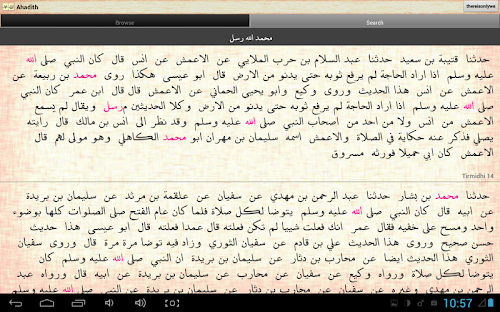 Ahadith
thereisonlywe
Browse
Search
محمد الله رسل
حدثنا قتيبة بن سعيد حدثنا عبد السلام بن حرب الملايي عن الاعمش عن انس قال كان النبي صلى الله
عليه وسلم اذا اراد الحاجة لم يرفع ثوبه حتى يدنو من الارض قال ابو عيسى هكذا روى محمد بن ربيعة عن
الاعمش عن انس هذا الحديث وروى وكيع وابو يحيى الحماني عن الاعمش قال قال ابن عمر كان النبي
صلى الله عليه وسلم اذا اراد الحاجة لم يرفع ثوبه حتى يدنو من الارض وكلا الحديثين مرسل ويقال لم يسمع
الاعمش من انس ولا من احد من اصحاب النبي صلى الله عليه وسلم وقد نظر الى انس بن مالك قال رايته
يصلي فذكر عنه حكاية في الصلاة والاعمش اسمه سليمان بن مهران ابو محمد الكاهلي وهو مولى لهم قال
الاعمش كان ابي حميلا فورثه مسروق
Tirmidhi 14
حدثنا محمد بن بشار حدثنا عبد الرحمن بن مهدي عن سفيان عن علقمة بن مرثد عن سليمان بن بريدة
عن ابيه قال كان النبي صلى الله عليه وسلم يتوضا لكل صلاة فلما كان عام الفتح صلى الصلوات كلها بوضوء
واحد ومسح على خفيه فقال عمر انك فعلت شييا لم تكن فعلته قال عمدا فعلته قال ابو عيسى هذا حديث
حسن صحيح وروى هذا الحديث علي بن قادم عن سفيان الثوري وزاد فيه توضا مرة مرة قال وروى سفيان
الثوري هذا الحديث ايضا عن محارب بن دثار عن سليمان بن بريدة ان النبي صلى الله عليه وسلم كان
يتوضا لكل صلاة ورواه وكيع عن سفيان عن محارب عن سليمان بن بريدة عن ابيه قال ورواه عبد
الرحمن بن مهدي وغيره عن سفيان عن محارب بن دثار عن سليمان بن بريدة عن النبي صلى الله عليه
10:57